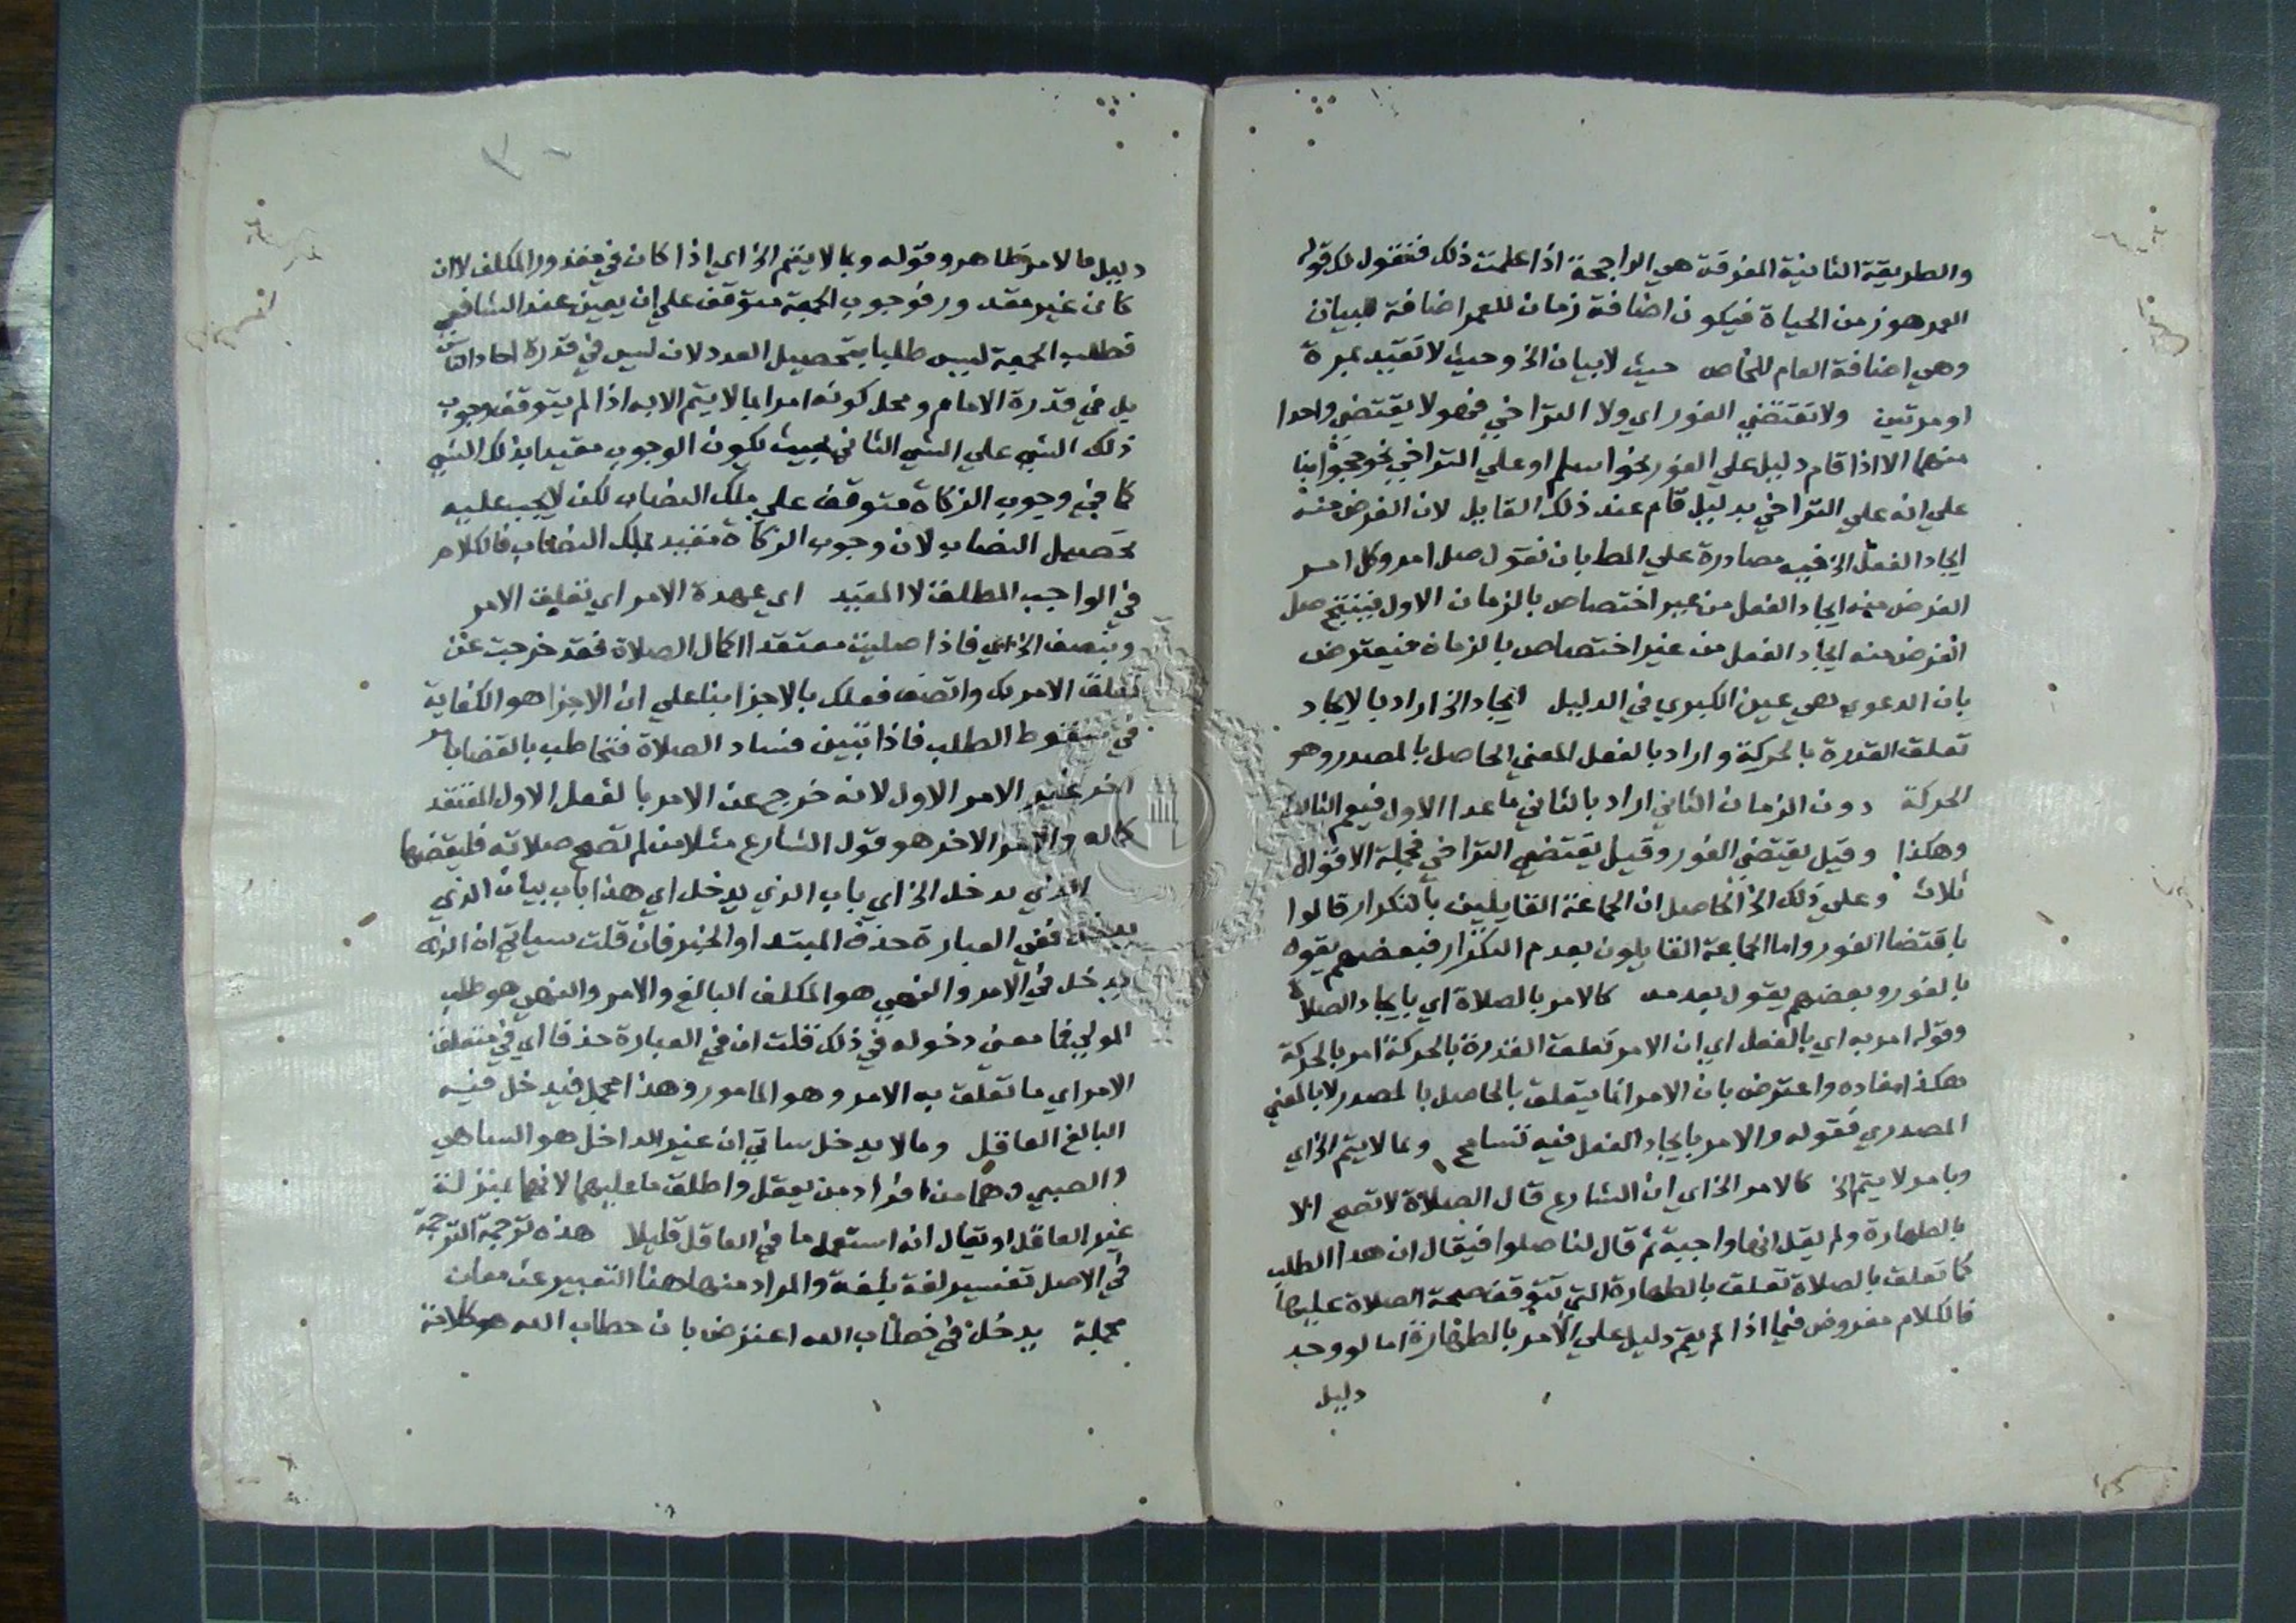 والطريقة الثانية المفرقة هي الراجحة اذا علمت ذلك فنقول لك قوله
العمر هو زمن الحياة فيكون اضافة زمان للعمر اضافة للبيان
وهي اضافة العام للخاص حيث لا بيان الخ وحيث لا تقيد بمرة
او مرتين ولا تقتضي الفور اي ولا التراخي فهو لا يقتضي واحدا
منهما الا اذا قام دليل علي الفور نحو اسلم او علي التراخي نحو حجوا بنا
علي انه علي التراخي بدليل قام عند ذلك القايل لان الغرض منه
ايجاد الفعل الخ فيه مصادرة علي المط بان نقول صل امر وكل امر
الغرض منه ايجاد الفعل من غير اختصاص بالزمان الاول فينتج صل
الغرض منه ايجاد الفعل من غير اختصاص بالزمان فيعترض
بان الدعوي هي عين الكبري في الدليل ايجاد الخ اراد بالايجاد
تعلق القدرة بالحركة واراد بالفعل المعني الحاصل بالمصدر وهو
الحركة دون الزمان الثاني اراد بالثاني ما عدا الاول فيعم الثالث
وهكذا وقيل يقتضي الفور وقيل يقتضي التراخي فجملة الاقوال
ثلاث وعلي ذلك الخ الحاصل ان الجماعة القايلين بالتكرار قالوا
باقتضا الفور واما الجماعة القايلون بعدم التكرار فبعضهم يقول
بالفور وبعضهم يقول بعدمه كالامر بالصلاة اي بايجاد الصلاة
وقوله امر به اي بالفعل اي ان الامر تعلق القدرة بالحركة امر بالحركة
هكذا مفاده واعترض بان الامر انما يتعلق بالحاصل بالمصدر لا بالمعني
المصدري فقوله والامر بايجاد الفعل فيه تسامح وبما لا يتم الخ اي
وبامر لا يتم الخ كالامر الخ اي ان الشارع قال الصلاة لا تصح الا
بالطهارة ولم يقل انها واجبة ثم قال لنا صلوا فيقال ان هذا الطلب
كما تعلق بالصلاة تعلق بالطهارة التي تتوقف صحة الصلاة عليها
فالكلام مفروض فيما اذا لم يقم دليل علي الامر بالطهارة اما لو وجد
دليل
دليل فالامر ظاهر وقوله وبما لا يتم الخ اي اذا كان في مقدور المكلف لا ان
كان غير مقدور فوجوب الجمعة متوقف علي ان يعين عند الشافعي
فطلب الجمعة ليس طلبا بتحصيل العدد لان ليس في قدرة احاد الناس
بل في قدرة الامام ومحل كونه امرا بما لا يتم الا به اذا لم يتوقف وجوب
ذلك الشي علي الشي الثاني بحيث يكون الوجوب مقيدا بذلك الشي
كما في وجوب الزكاة متوقف علي ملك النصاب لكن لا يجب عليه
تحصيل النصاب لان وجوب الزكاة مقيد بملك النصاب فالكلام
في الواجب المطلق لا المقيد اي عهدة الامر اي تعلق الامر
ويتصف الخ اي فاذا صليت معتقدا اكمال الصلاة فقد خرجت عن
تعلق الامر بك واتصف فعلك بالاجزا بنا علي ان الاجزا هو الكفاية
في سقوط الطلب فاذا تبين فساد الصلاة فتخاطب بالقضا بامر
اخر غير الامر الاول لانه خرج عن الامر بالفعل الاول المعتقد
كماله والامر الاخر هو قول الشارع مثلا من لم تصح صلاته فليقضها
الذي يدخل الخ اي باب الذي يدخل اي هذا باب بيان الذي
يدخل ففي العبارة حذف المبتدا والخبر فان قلت سياتي ان الذي
يدخل في الامر والنهي هو المكلف البالغ والامر والنهي هو طلب
المولي فما معني دخوله في ذلك قلت ان في العبارة حذفا اي في متعلق
الامر اي ما تعلق به الامر وهو المامور وهذا مجمل فيدخل فيه
البالغ العاقل وما لا يدخل ساتي ان غير الداخل هو الساهي
والصبي وهما من افراد من يعقل واطلق ما عليهما لانهما بمنزلة
غير العاقل او يقال انه استعمل ما في العاقل قليلا هذه ترجمة الترجمة
في الاصل تفسير لغة بلغة والمراد منها هنا التعبير عن معان
مجملة يدخل في خطاب الله اعترض بان خطاب الله هو كلامه